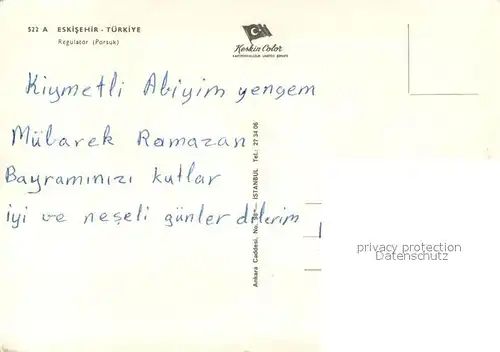 522 A ESKİŞEHİR - TÜRKİYE
Regülatör (Porsuk)
Keskin Color
Kıymetli Abiyim yengem
Mübarek Ramazan
Bayramınızı kutlar
iyi ve neşeli günler dilerim
Ankara Caddesi. No. İSTANBUL Tel.: 27 34 06
privacy protection
Datenschutz